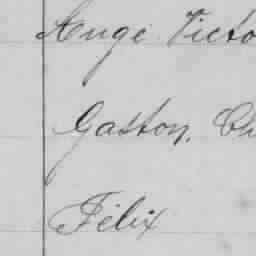 Ange Victo
Gaston, Ch
Félix